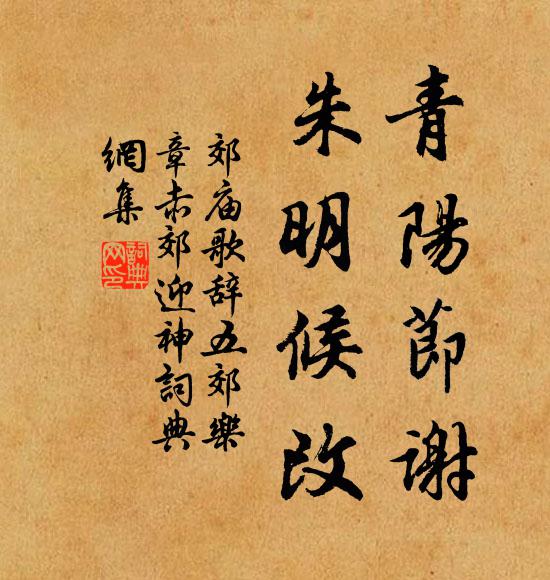 青陽節謝
朱明候改
郊庙歌辞五郊樂
章赤郊迎神詞典
網集
詞典
网印